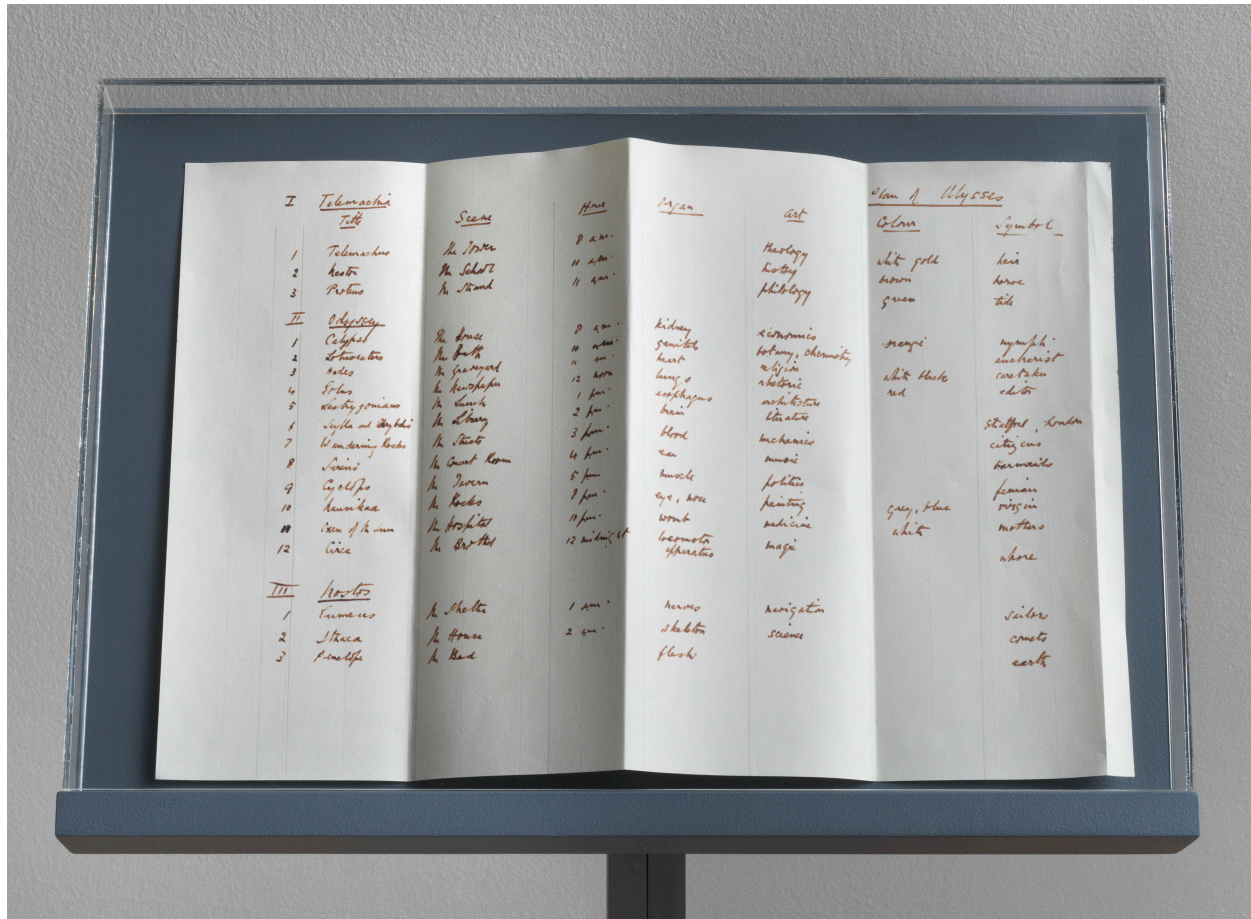 Plan of Ulysses
I Telemachia
Title Scene Hour Organ Art Colour Symbol
1 Telemachus The Tower 8 a.m. theology white gold heir
2 Nestor The School 10 a.m. history brown horse
3 Proteus The Strand 11 a.m. philology green tide
II Odyssey
1 Calypso The House 8 a.m. kidney economics orange nymph
2 Lotuseaters The Bath 10 a.m. genitals botany, chemistry eucharist
3 Hades The Graveyard 11 a.m. heart religion white black caretaker
4 Eolus The Newspaper 12 noon lungs rhetoric red editor
5 Lestrygonians The Lunch 1 p.m. esophagus architecture
6 Scylla and Charybdis The Library 2 p.m. brain literature Stratford, London
7 Wandering Rocks The Streets 3 p.m. blood mechanics citizens
8 Sirens The Concert Room 4 p.m. ear music barmaids
9 Cyclops The Tavern 5 p.m. muscle politics fenian
10 Nausikaa The Rocks 8 p.m. eye, nose painting grey, blue virgin
11 Oxen of the Sun The Hospital 10 p.m. womb medicine white mothers
12 Circe The Brothel 12 midnight locomotor apparatus magic whore
III Nostos
1 Eumeus The Shelter 1 a.m. nerves navigation sailors
2 Ithaca The House 2 a.m. skeleton science comets
3 Penelope The Bed flesh earth